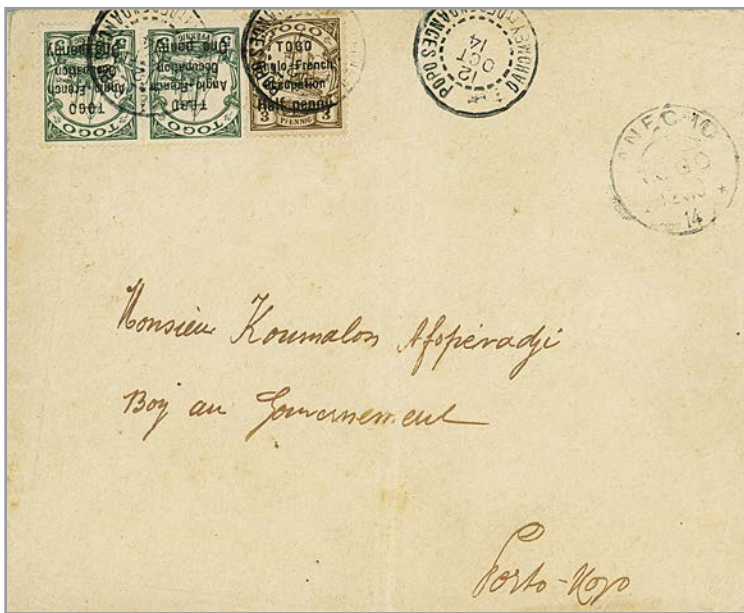 TOGO
Anglo-French
Occupation
One penny
PFENNIG
TOGO
TOGO
Anglo-French
Occupation
One penny
PFENNIG
TOGO
TOGO
TOGO
Anglo-French
Occupation
Half penny
3 PFENNIG 3
POPO
DAHOMEY ET DEPENDANCES
12
OCT
14
ANECHO
TOGO
14
Monsieur Koumalon Afopéradji
Boy au Gouvernement
Porto-Novo